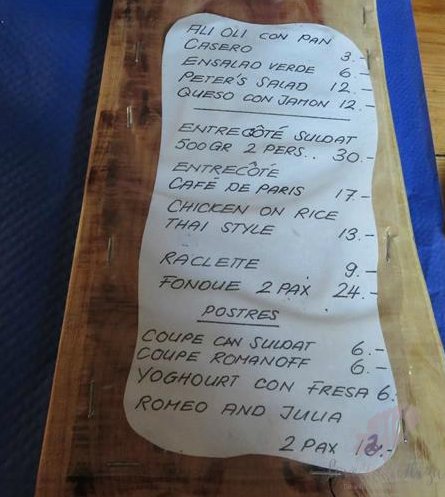 ALI OLI CON PAN
CASERO 3.-
ENSALAD VERDE 6.-
PETER'S SALAD 12.-
QUESO CON JAMON 12.-
ENTRECÔTÉ SULDAT
500GR 2 PERS.. 30.-
ENTRECÔTÉ
CAFÉ DE PARIS 17.-
CHICKEN ON RICE
THAI STYLE 13.-
RACLETTE 9.-
FONDUE 2 PAX 24.-
POSTRES
COUPE CAN SULDAT 6.-
COUPE ROMANOFF 6.-
YOGHOURT CON FRESA 6.
ROMEO AND JULIA
2 PAX 12.-